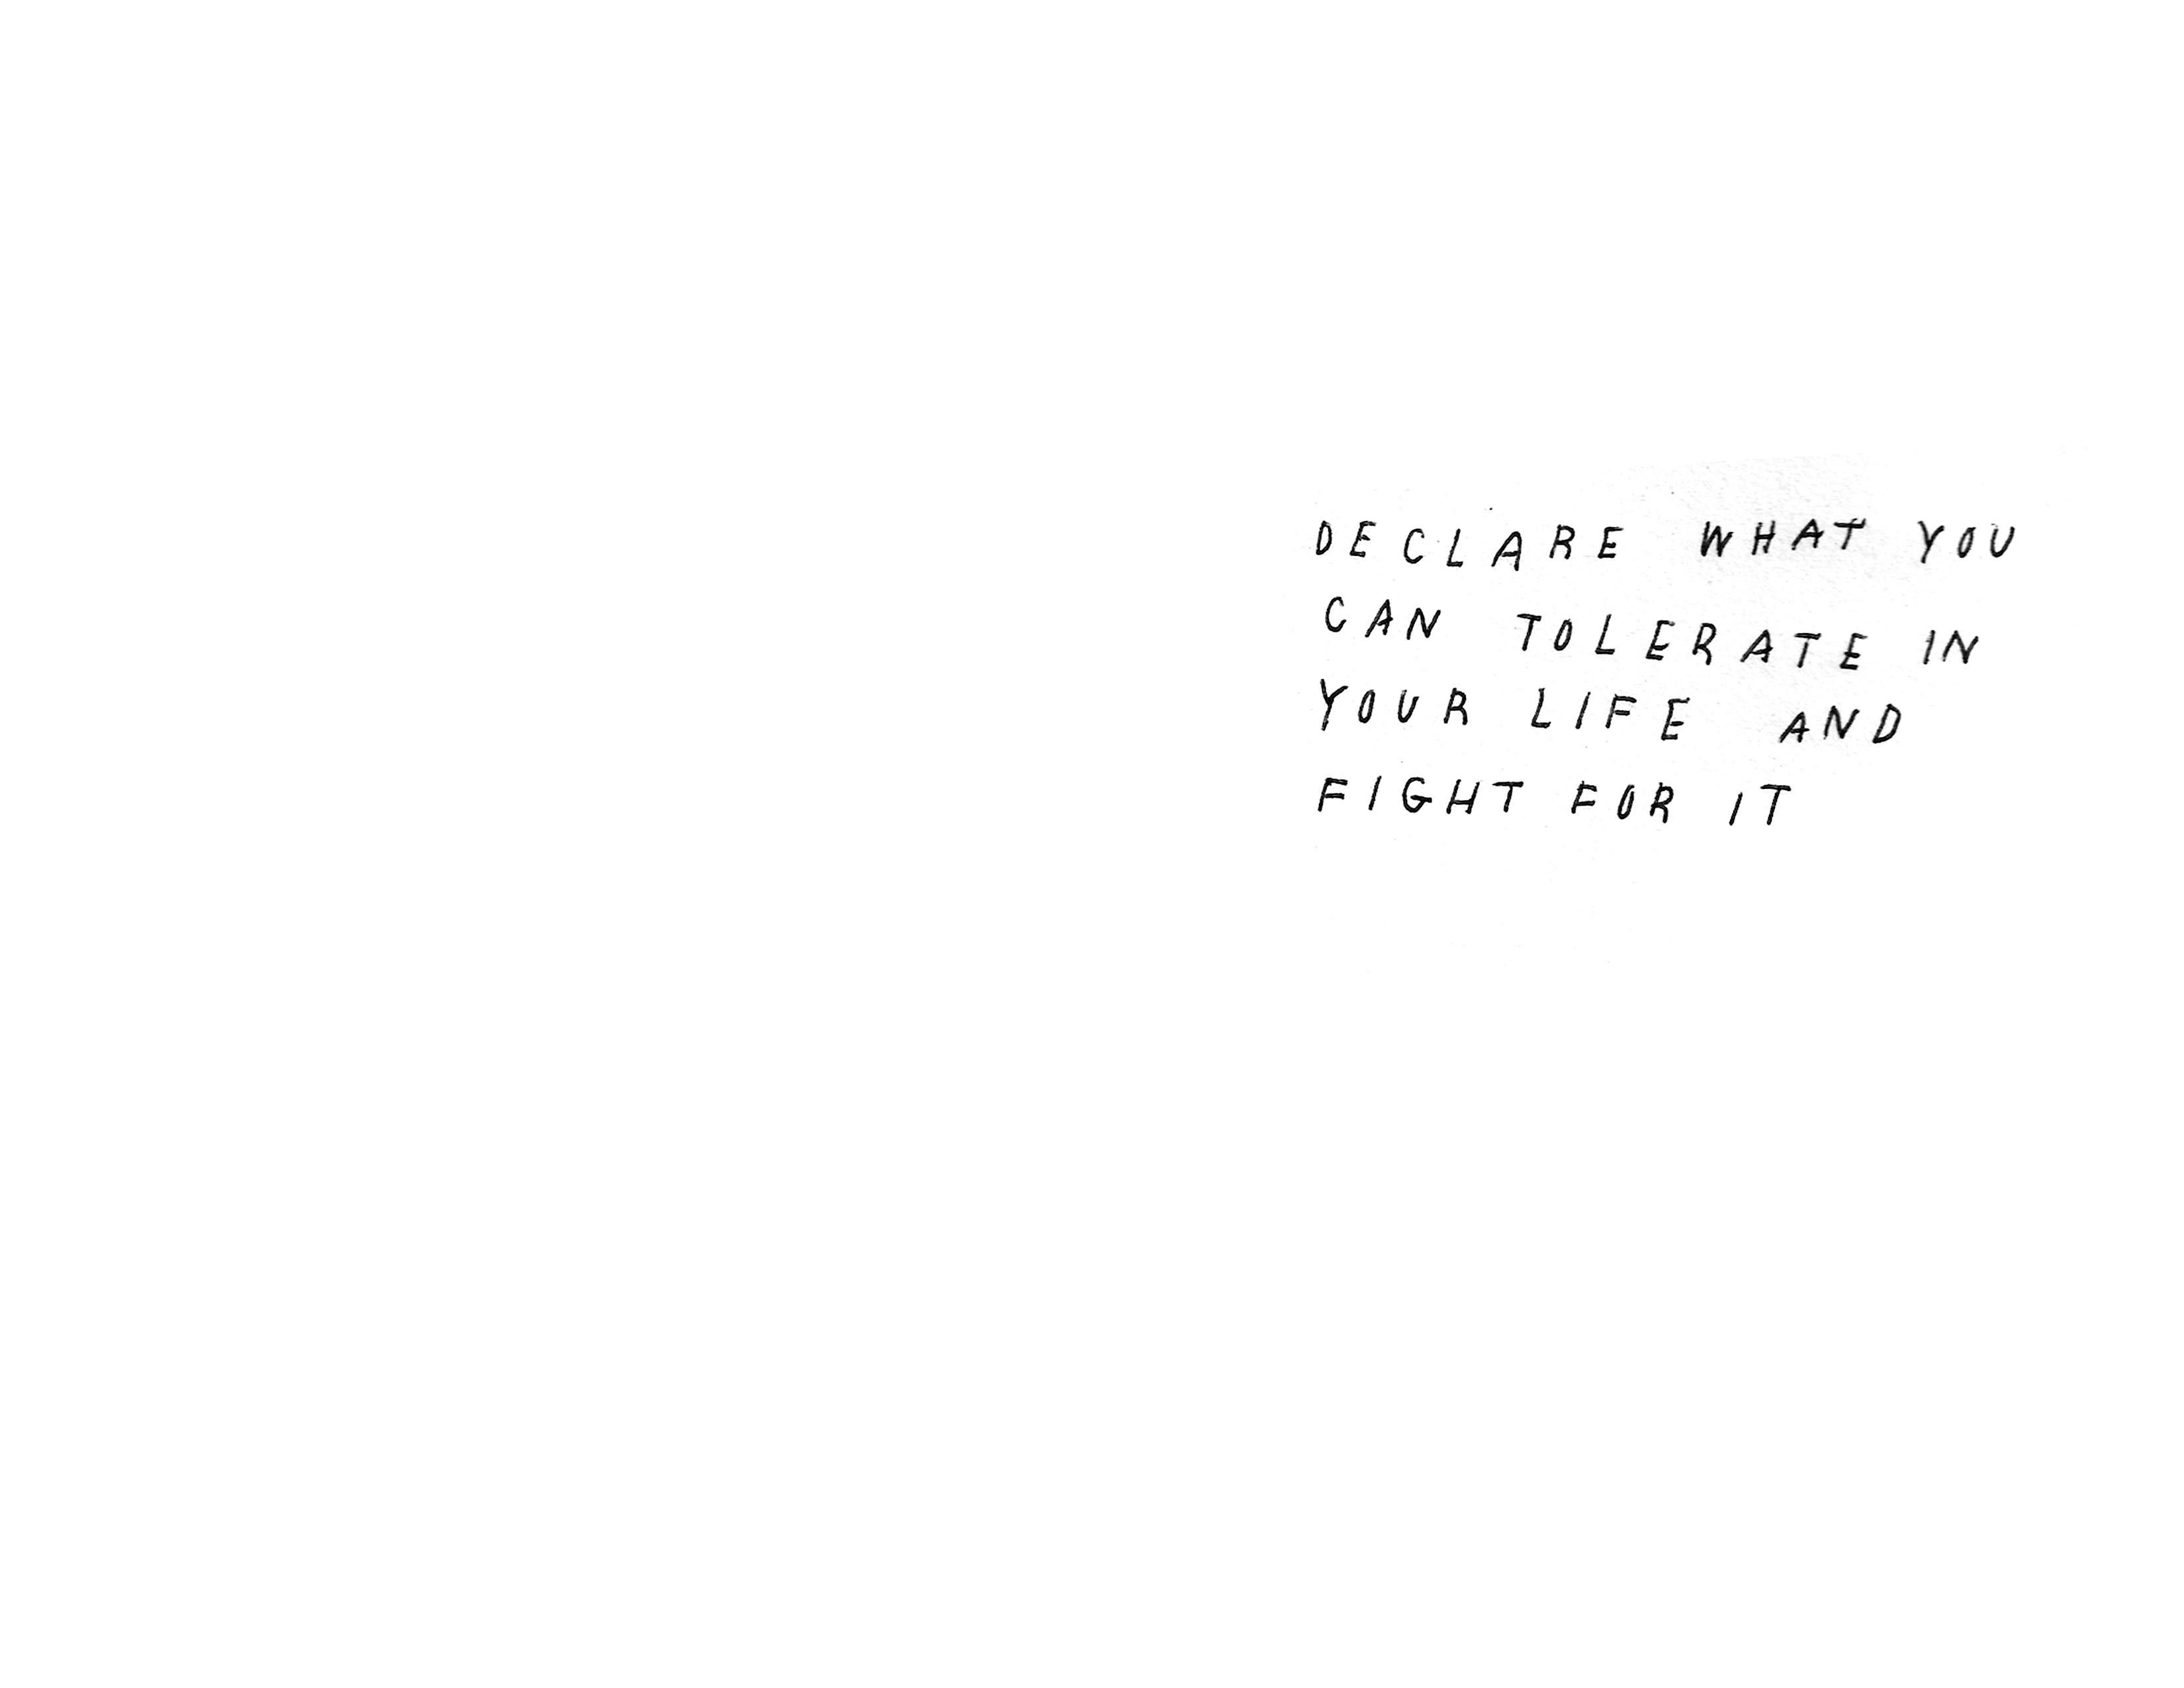 DECLARE WHAT YOU
CAN TOLERATE IN
YOUR LIFE AND
FIGHT FOR IT